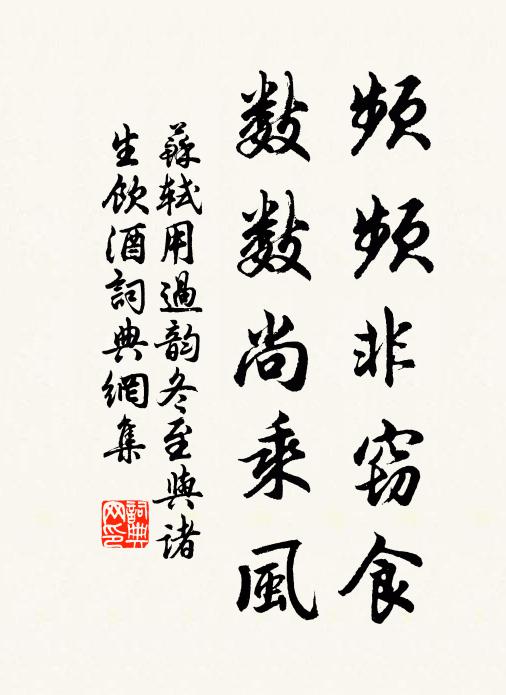 頻頻非窃食
數數尚乘風
蘇軾用過韵冬至與諸
生飲酒詞典網集
詞典
网印